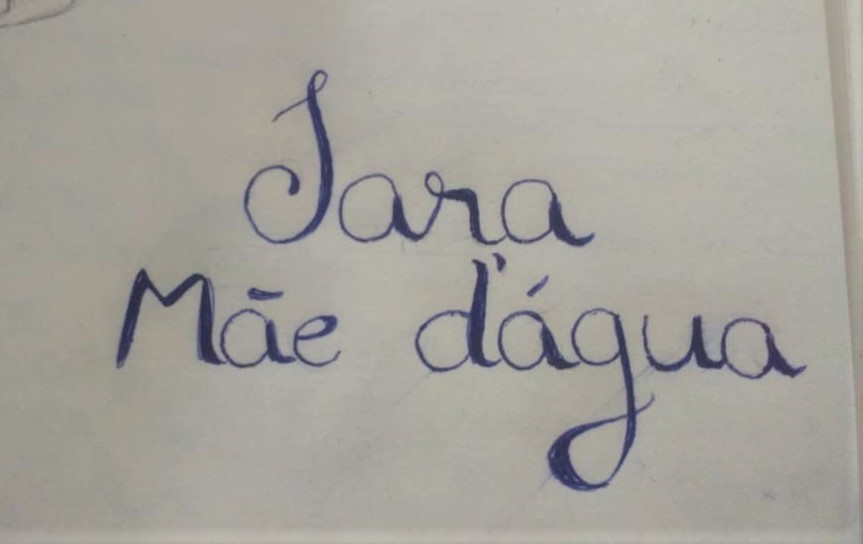 Iara
Mãe d'água